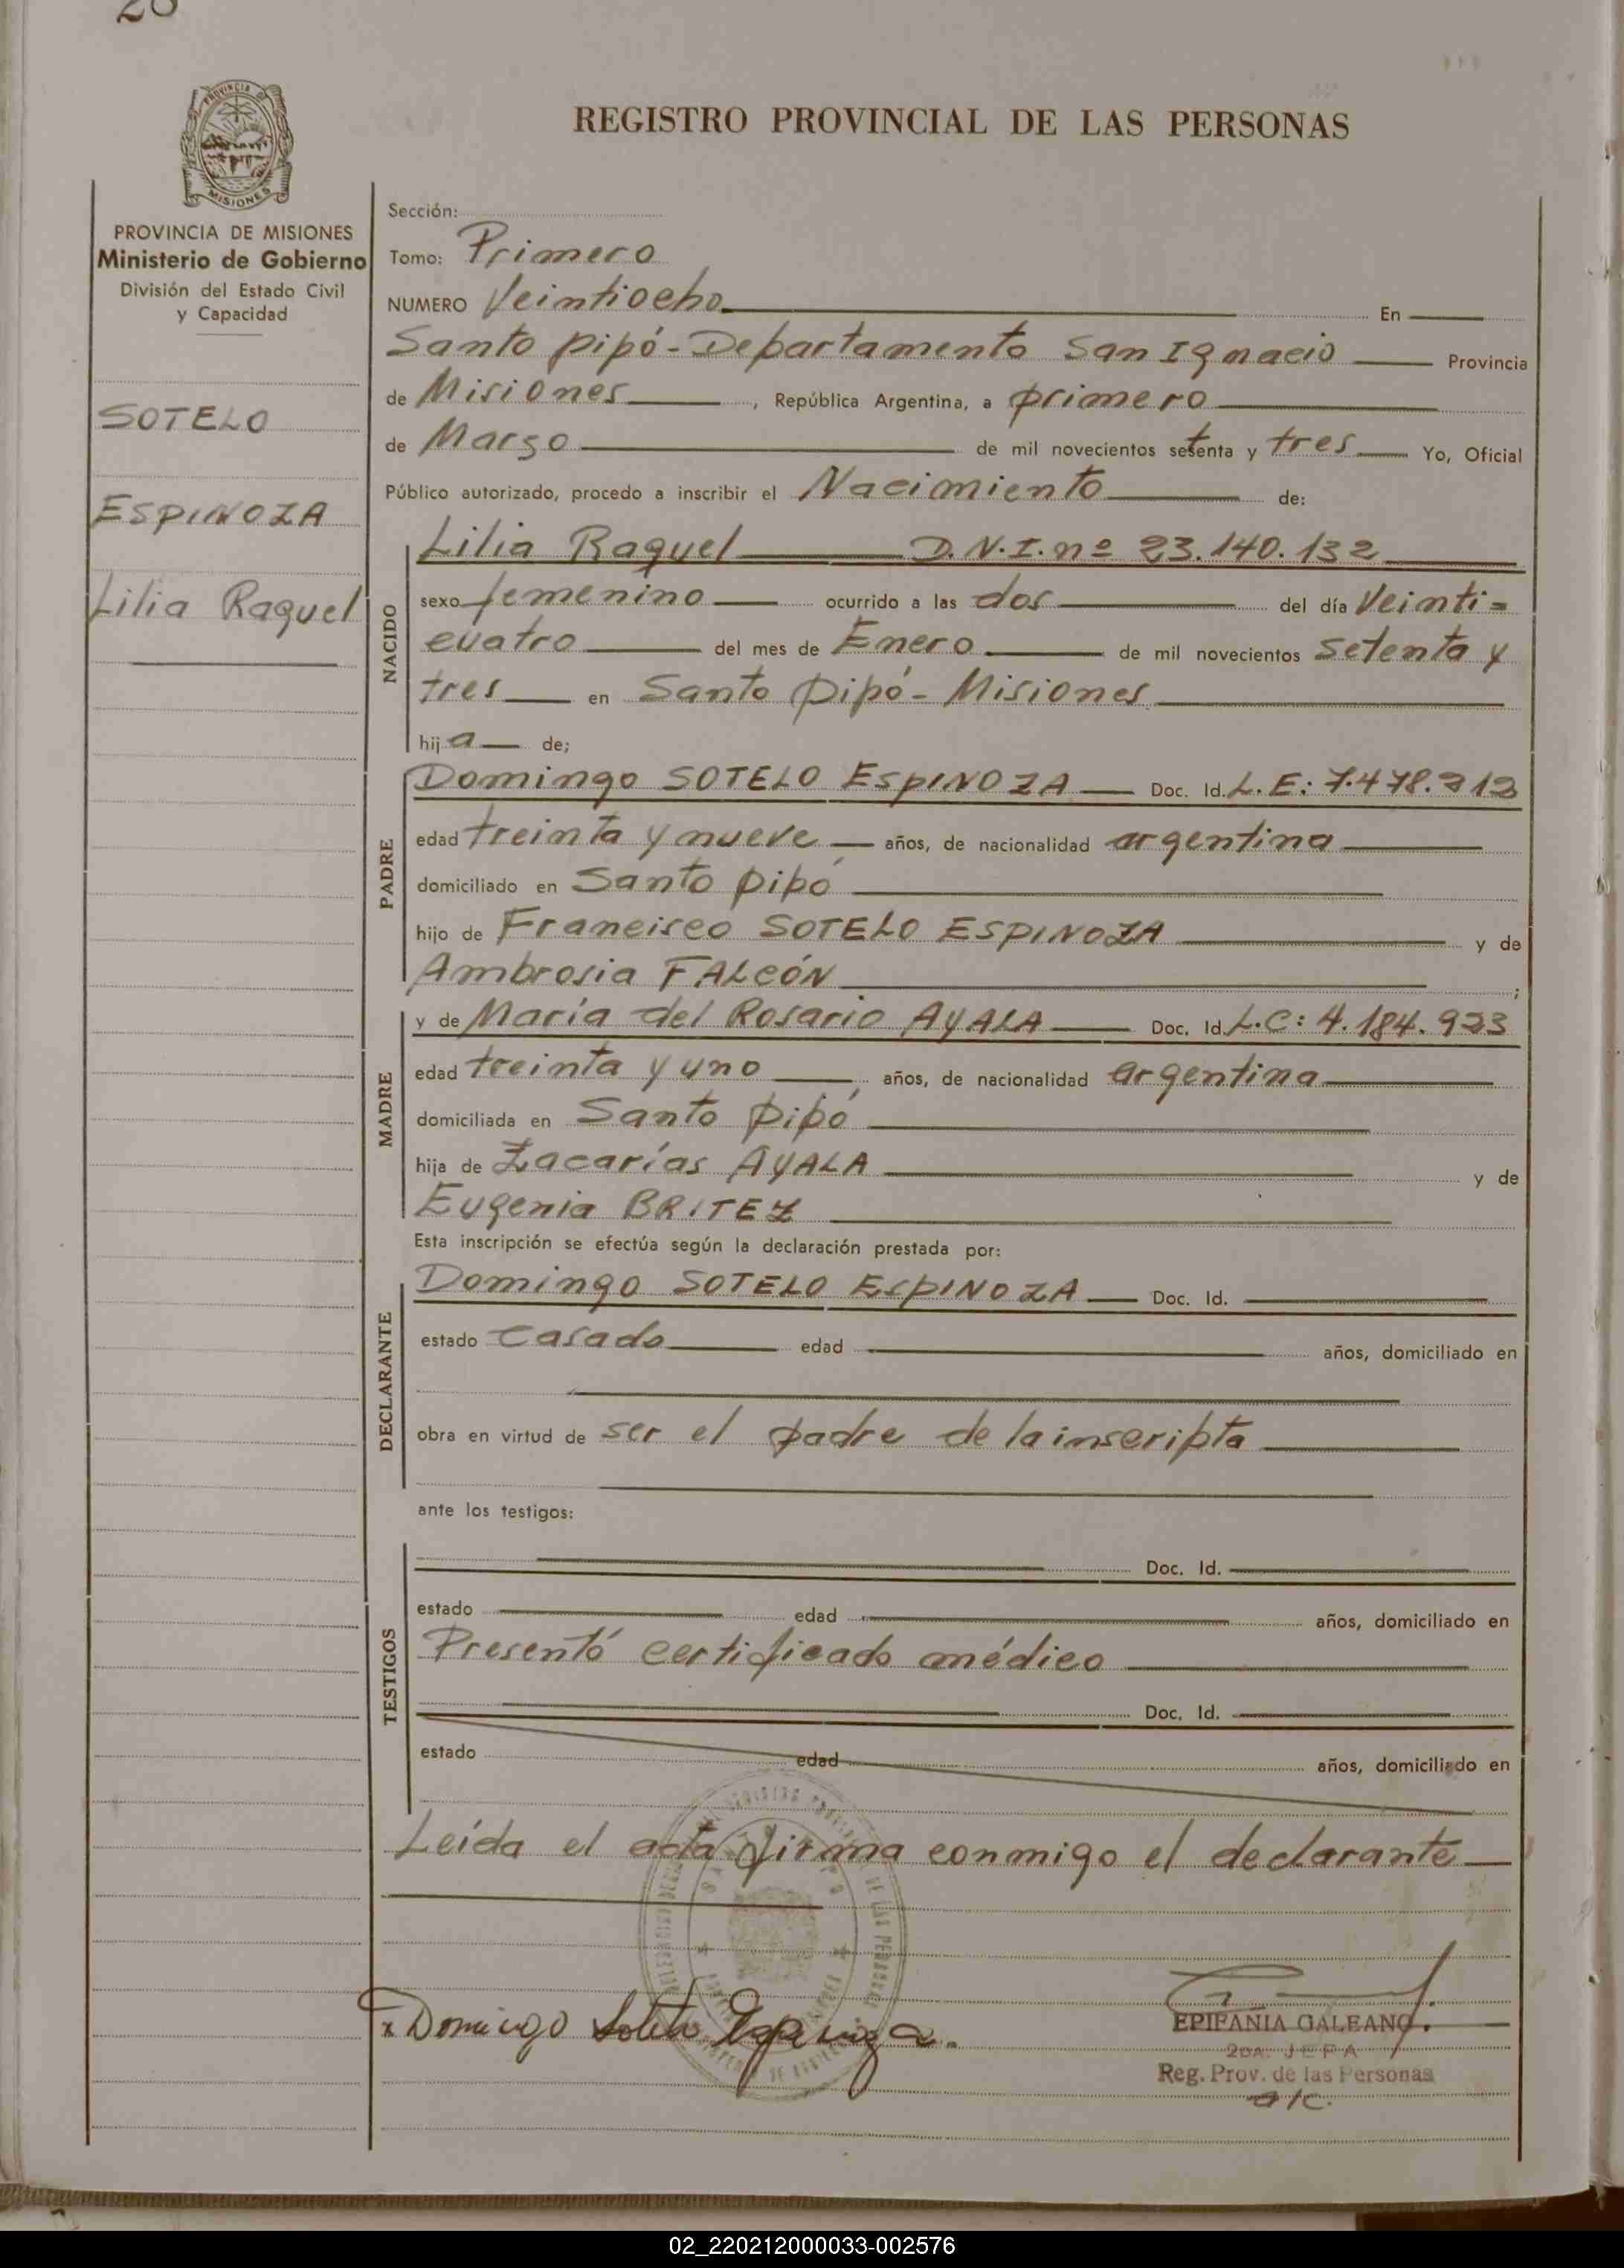 REGISTRO PROVINCIAL DE LAS PERSONAS
PROVINCIA DE MISIONES
Ministerio de Gobierno
División del Estado Civil
y Capacidad
SOTELO
ESPINOZA
Lilia Raquel
Sección:
Tomo: Primero
NUMERO Veintiocho En
Santo Pipó - Departamento San Ignacio Provincia
de Misiones, República Argentina, a primero
de Marzo de mil novecientos setenta y tres Yo, Oficial
Público autorizado, procedo a inscribir el Nacimiento de:
NACIDO
Lilia Raquel D.N.I. nº 23.140.132
sexo femenino ocurrido a las dos del día Veinti=
cuatro del mes de Enero de mil novecientos setenta y
tres en Santo Pipó - Misiones
hija de;
PADRE
Domingo SOTELO ESPINOZA Doc. Id. L.E: 7.478.212
edad treinta y nueve años, de nacionalidad argentina
domiciliado en Santo Pipó
hijo de Francisco SOTELO ESPINOZA y de
Ambrosia FALCÓN ;
MADRE
y de María del Rosario AYALA Doc. Id. L.C: 4.184.923
edad treinta y uno años, de nacionalidad argentina
domiciliada en Santo Pipó
hija de Zacarías AYALA y de
Eugenia BRITEZ
Esta inscripción se efectúa según la declaración prestada por:
DECLARANTE
Domingo SOTELO ESPINOZA Doc. Id.
estado casado edad años, domiciliado en
obra en virtud de ser el padre de la inscripta
ante los testigos:
TESTIGOS
Doc. Id.
estado edad años, domiciliado en
Presentó certificado médico
Doc. Id.
estado edad años, domiciliado en
Leída el acta firma conmigo el declarante
x Domingo Sotelo Espinoza.
EPIFANIA GALEANO
2DA. JEFA
Reg. Prov. de las Personas
a/c.
02_220212000033-002576